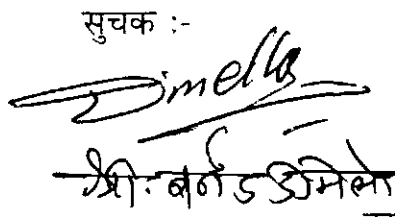 सुचक :-
Dmello
श्री. बर्नड डीमेलो